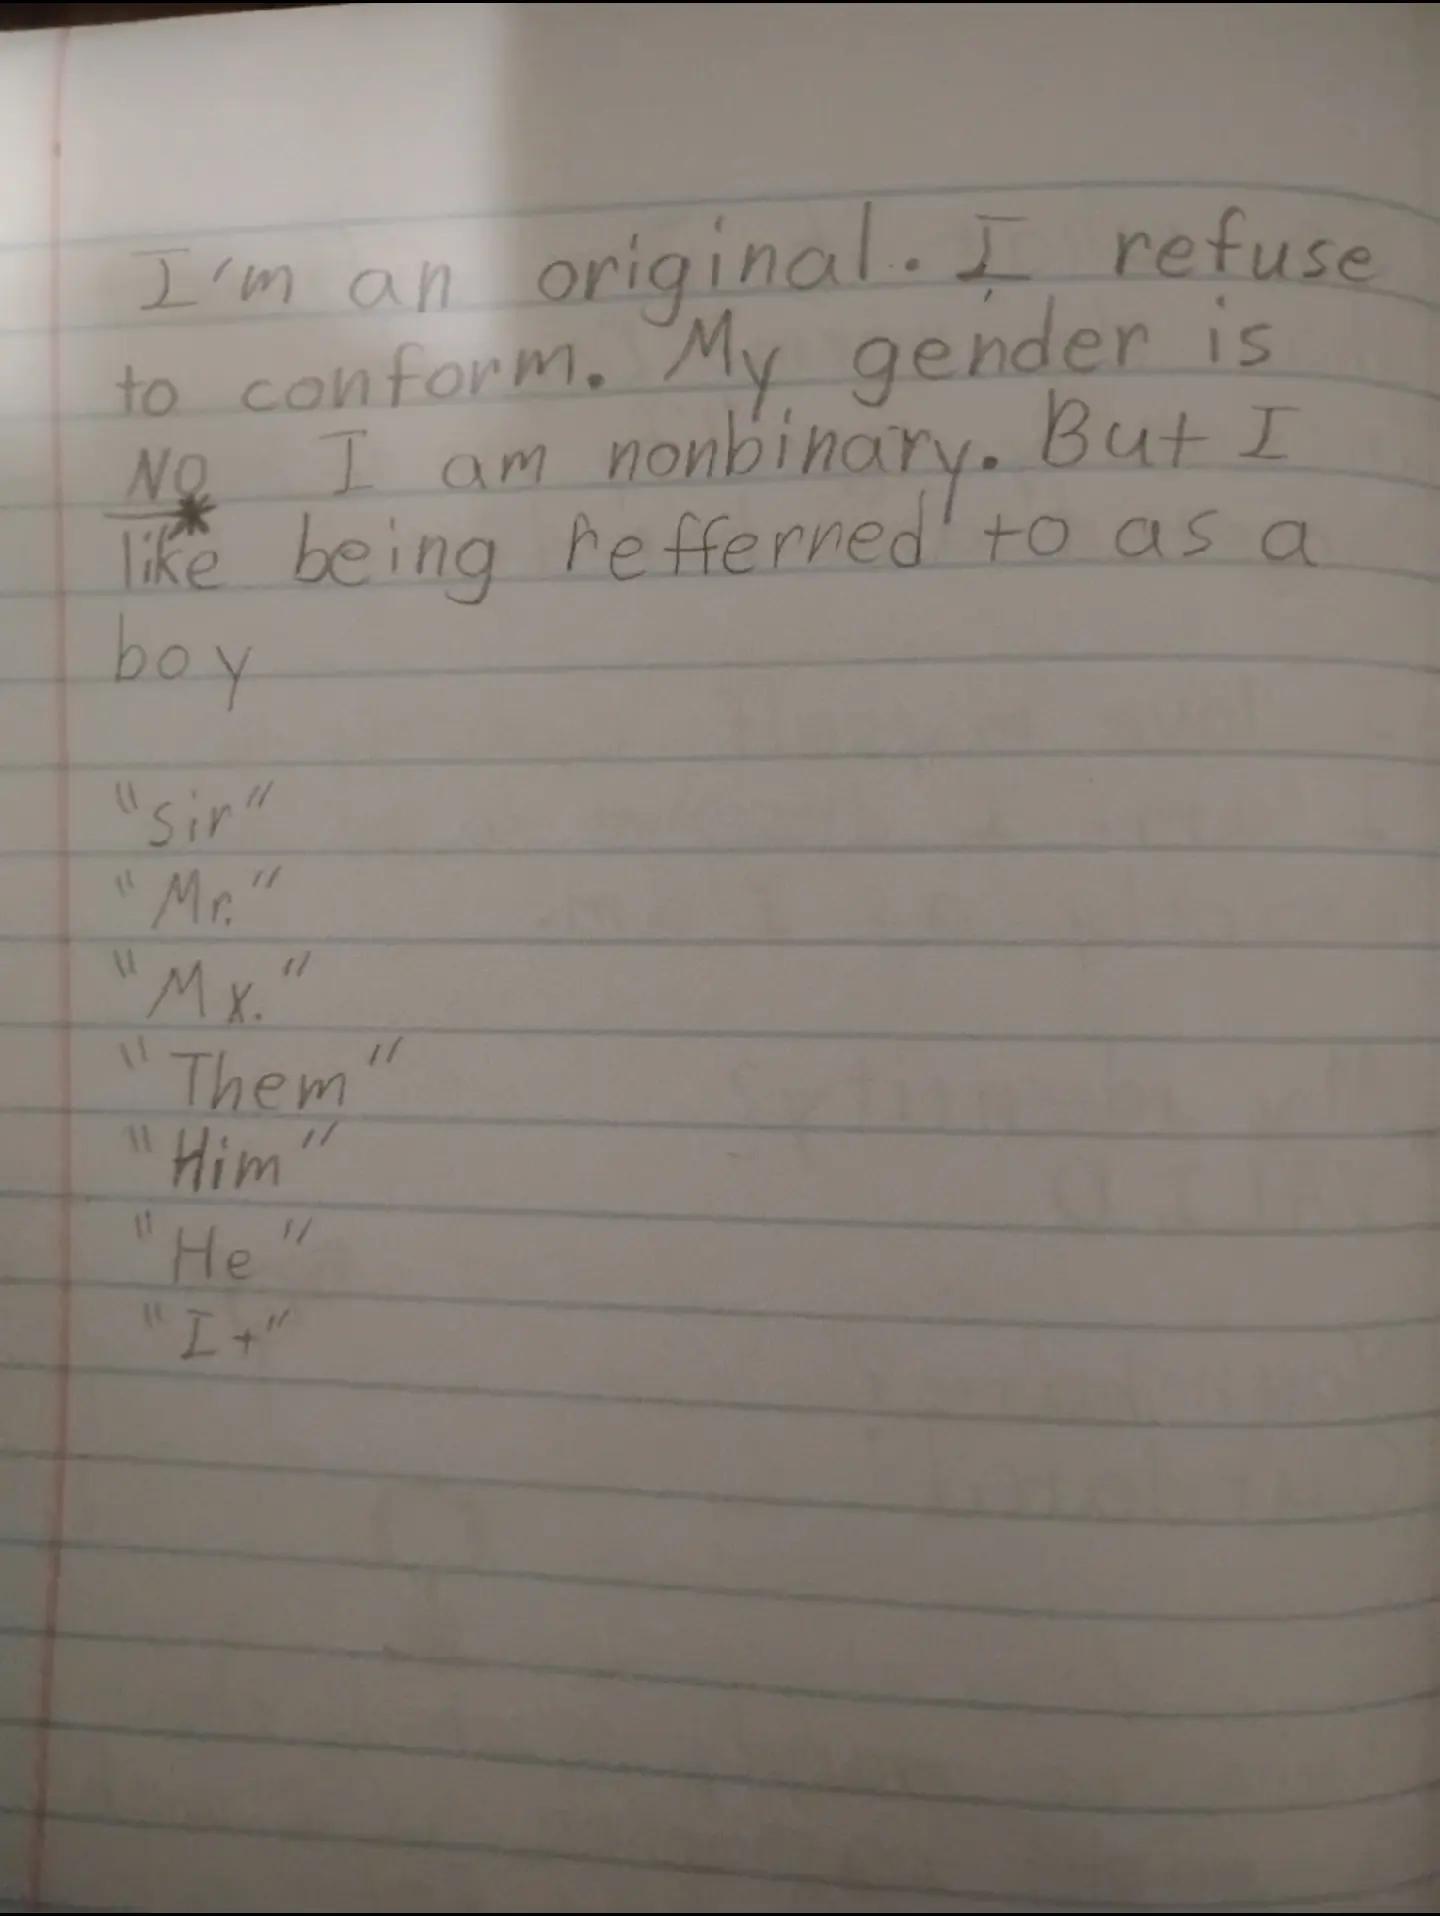 I'm an original. I refuse
to conform. My gender is
NO I am nonbinary. But I
like being refferred to as a
boy
"Sir"
"Mr."
"Mx."
"Them"
"Him"
"He"
"It"